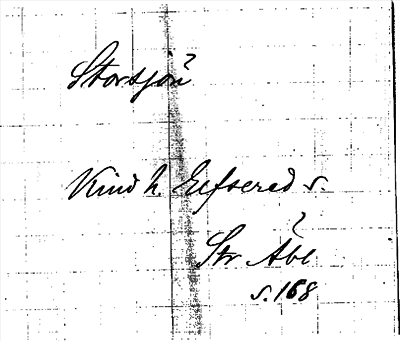 Storsjön
Kind h. Elfsered s.
Str Åbe
s. 168